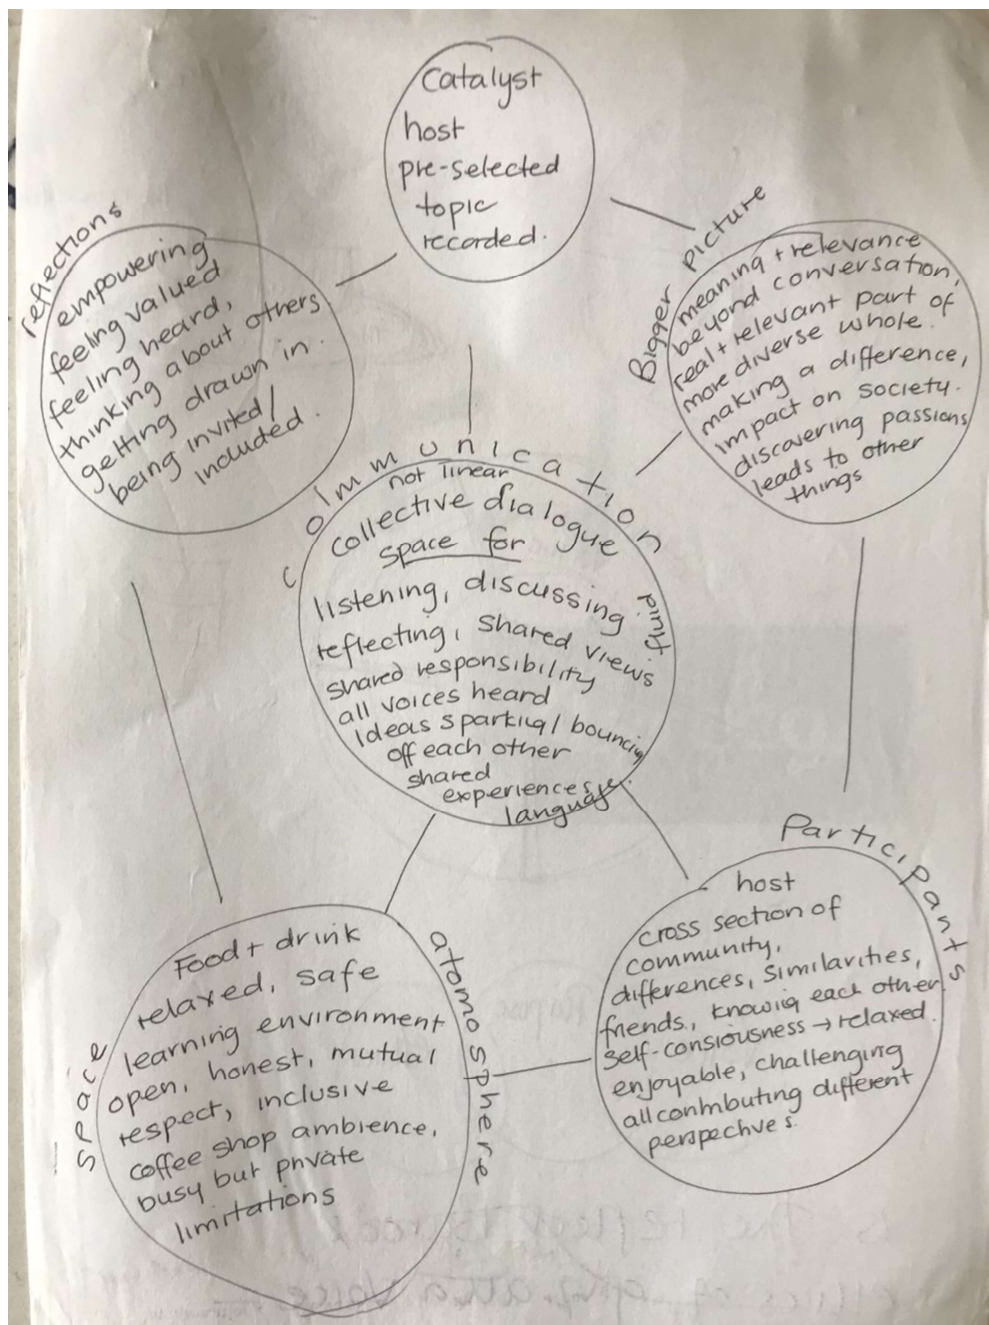 Catalyst
host
pre-selected
topic
recorded.
reflections
empowering
feeling valued
feeling heard,
thinking about others
getting drawn in.
being invited/
included.
Bigger picture
meaning + relevance
beyond conversation,
real + relevant part of
more diverse whole.
making a difference,
impact on society.
discovering passions
leads to other
things
communication
not linear
collective dialogue
space for
listening, discussing
fluid
reflecting, shared views
shared responsibility
all voices heard
Ideas sparking/bouncing
off each other
shared
experiences,
language.
space
atomosphere
Food + drink
relaxed, safe
learning environment
open, honest, mutual
respect, inclusive
coffee shop ambience,
busy but private
limitations
Participants
host
cross section of
community,
differences, similarities,
friends, knowing each other
self-consiousness → relaxed.
enjoyable, challenging
all contributing different
perspectives.